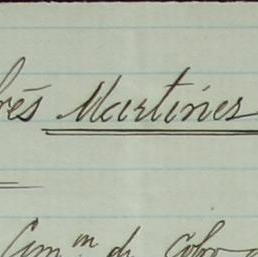 rés Martines
Comⁿ de Cobro